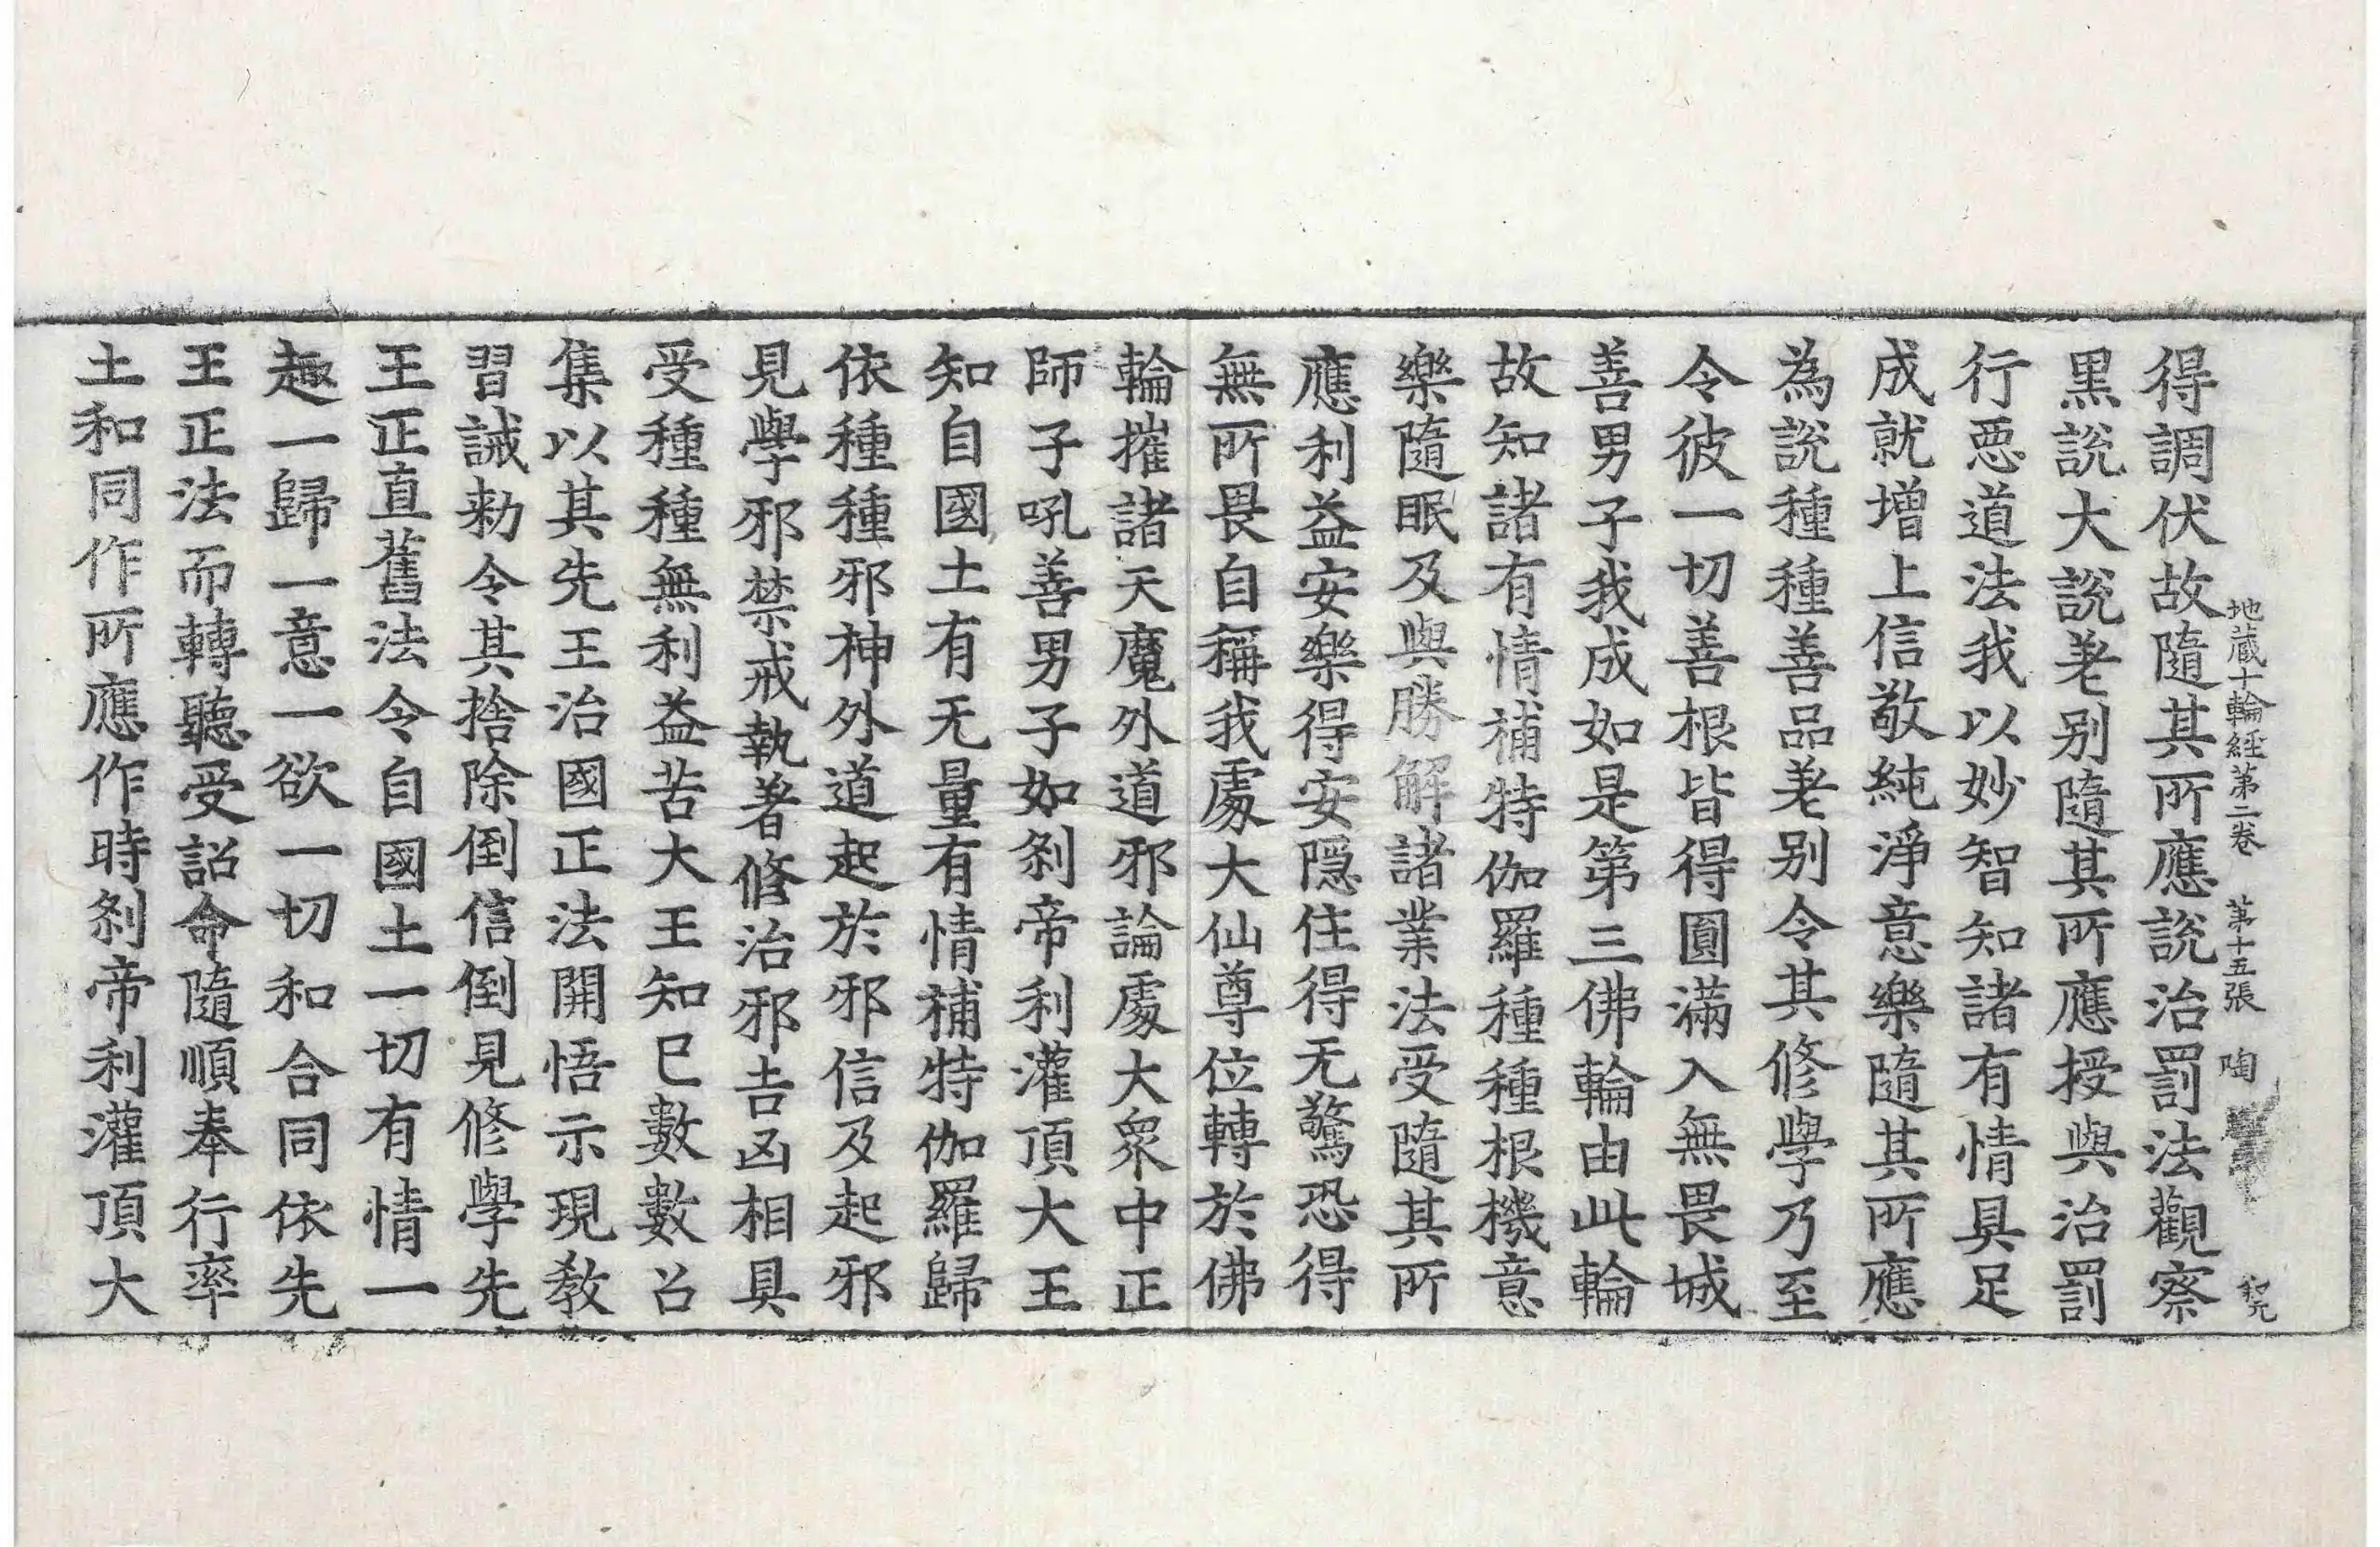 地蔵十輪経第二巻　第十五張　陶
得調伏故隨其所應説治罰法觀察
黒説大説差别隨其所應授與治罰
行惡道法我以妙智知諸有情具足
成就増上信敬純淨意樂隨其所應
為説種種善品差别令其修學乃至
令彼一切善根皆得圓滿入無畏城
善男子我成如是第三佛輪由此輪
故知諸有情補特伽羅種種根機意
樂隨眠及與勝解諸業法受隨其所
應利益安樂得安隠住得无驚恐得
無所畏自稱我處大仙尊位轉於佛
輪摧諸天魔外道邪論處大衆中正
師子吼善男子如刹帝利灌頂大王
知自國土有无量有情補特伽羅歸
依種種邪神外道起於邪信及起邪
見學邪禁戒執著修治邪吉凶相具
受種種無利益苦大王知已數數召
集以其先王治國正法開悟示現教
習誡勅令其捨除倒信倒見修學先
王正直舊法令自國土一切有情一
趣一歸一意一欲一切和合同依先
王正法而轉聽受詔命隨順奉行率
土和同作所應作時刹帝利灌頂大